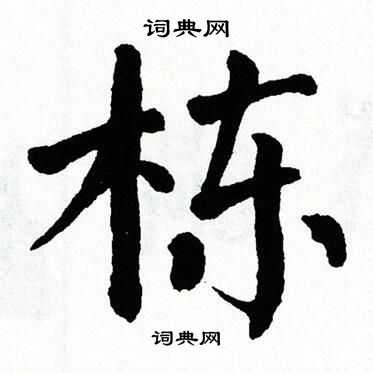 词典网
栋
词典网